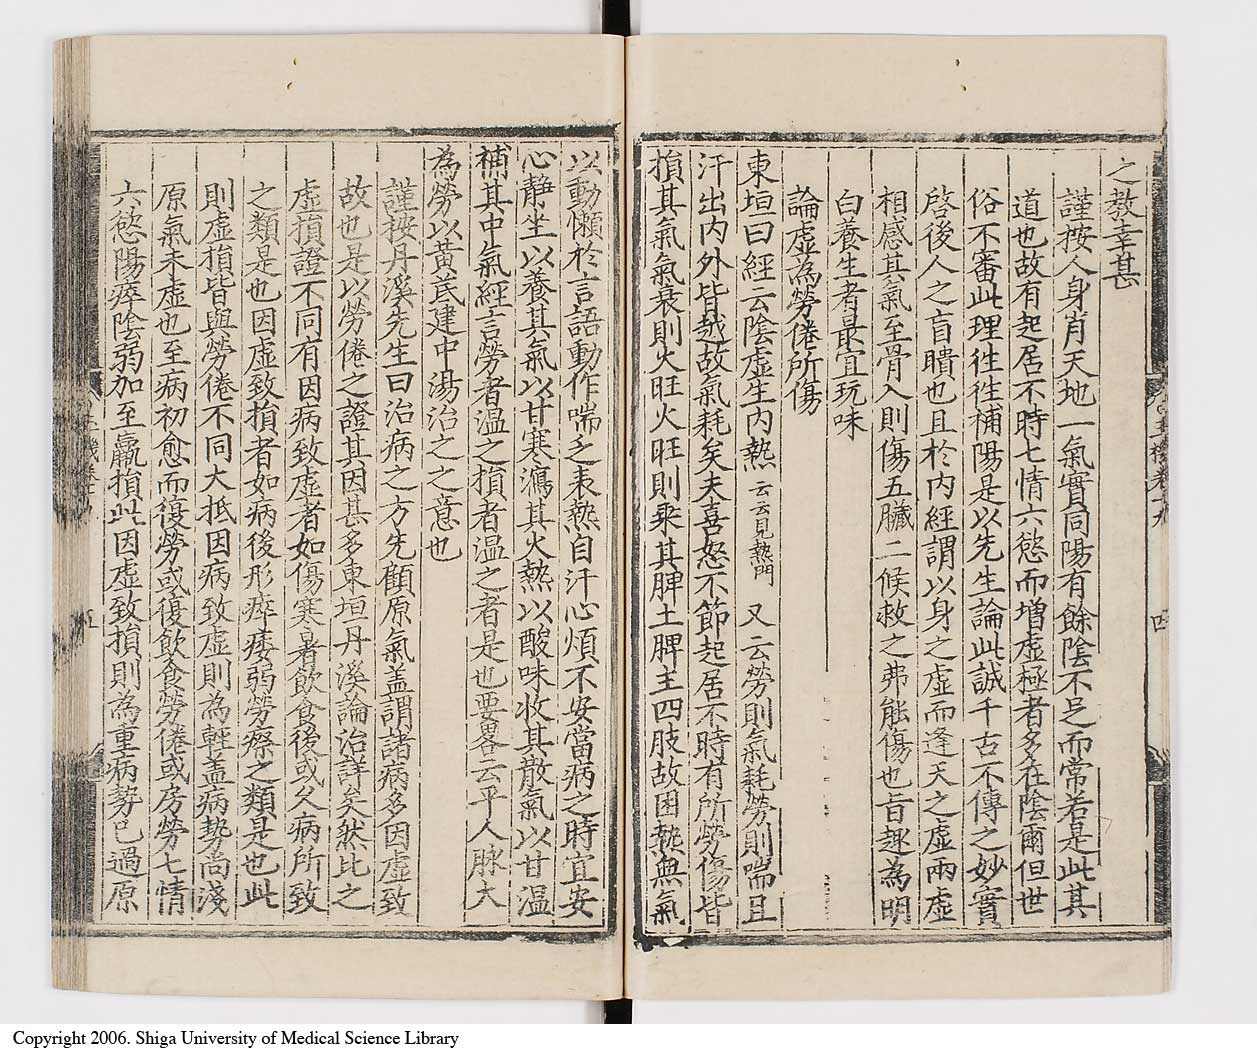 之教幸甚
謹按人身肖天地一氣實同陽有餘陰不足而常若是此其
道也故有起居不時七情六慾而增虛極者多在陰爾但世
俗不審此理往往補陽是以先生論此誠千古不傳之妙實
啓後人之盲瞶也且於內經謂以身之虛而逢天之虛兩虛
相感其氣至骨入則傷五臟二候救之弗能傷也旨趣為明
白養生者最宜玩味
論虛為勞倦所傷
東垣曰經云陰虛生內熱云云見熱門又云勞則氣耗勞則喘且
汗出內外皆越故氣耗矣夫喜怒不節起居不時有所勞傷皆
損其氣氣衰則火旺火旺則乘其脾土脾主四肢故困熱無氣
以動懶於言語動作喘乏表熱自汗心煩不安當病之時宜安
心靜坐以養其氣以甘寒瀉其火熱以酸味收其散氣以甘溫
補其中氣經言勞者溫之損者溫之者是也要畧云平人脉大
為勞以黃芪建中湯治之之意也
謹按丹溪先生曰治病之方先顧原氣盖謂諸病多因虛致
故也是以勞倦之證其因甚多東垣丹溪論治詳矣然比之
虛損證不同有因病致虛者如傷寒暑飲食後或久病所致
之類是也因虛致損者如病後形瘁痿弱勞瘵之類是也此
則虛損皆與勞倦不同大抵因病致虛則為輕盖病勢尚淺
原氣未虛也至病初愈而復勞或復飲食勞倦或房勞七情
六慾陽瘁陰弱加至羸損此因虛致損則為重病勢已過原
四
五
Copyright 2006. Shiga University of Medical Science Library